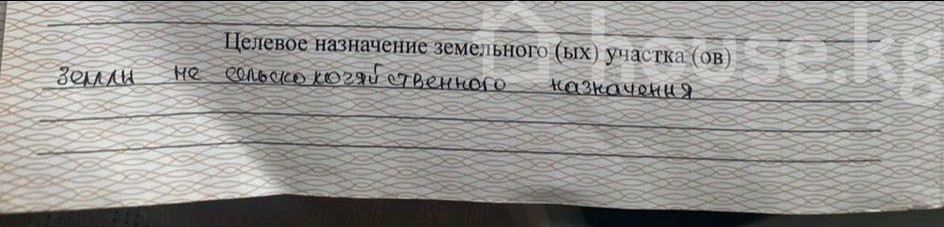 Целевое назначение земельного (ых) участка (ов)
земли не сельскохозяйственного назначения
house.kg